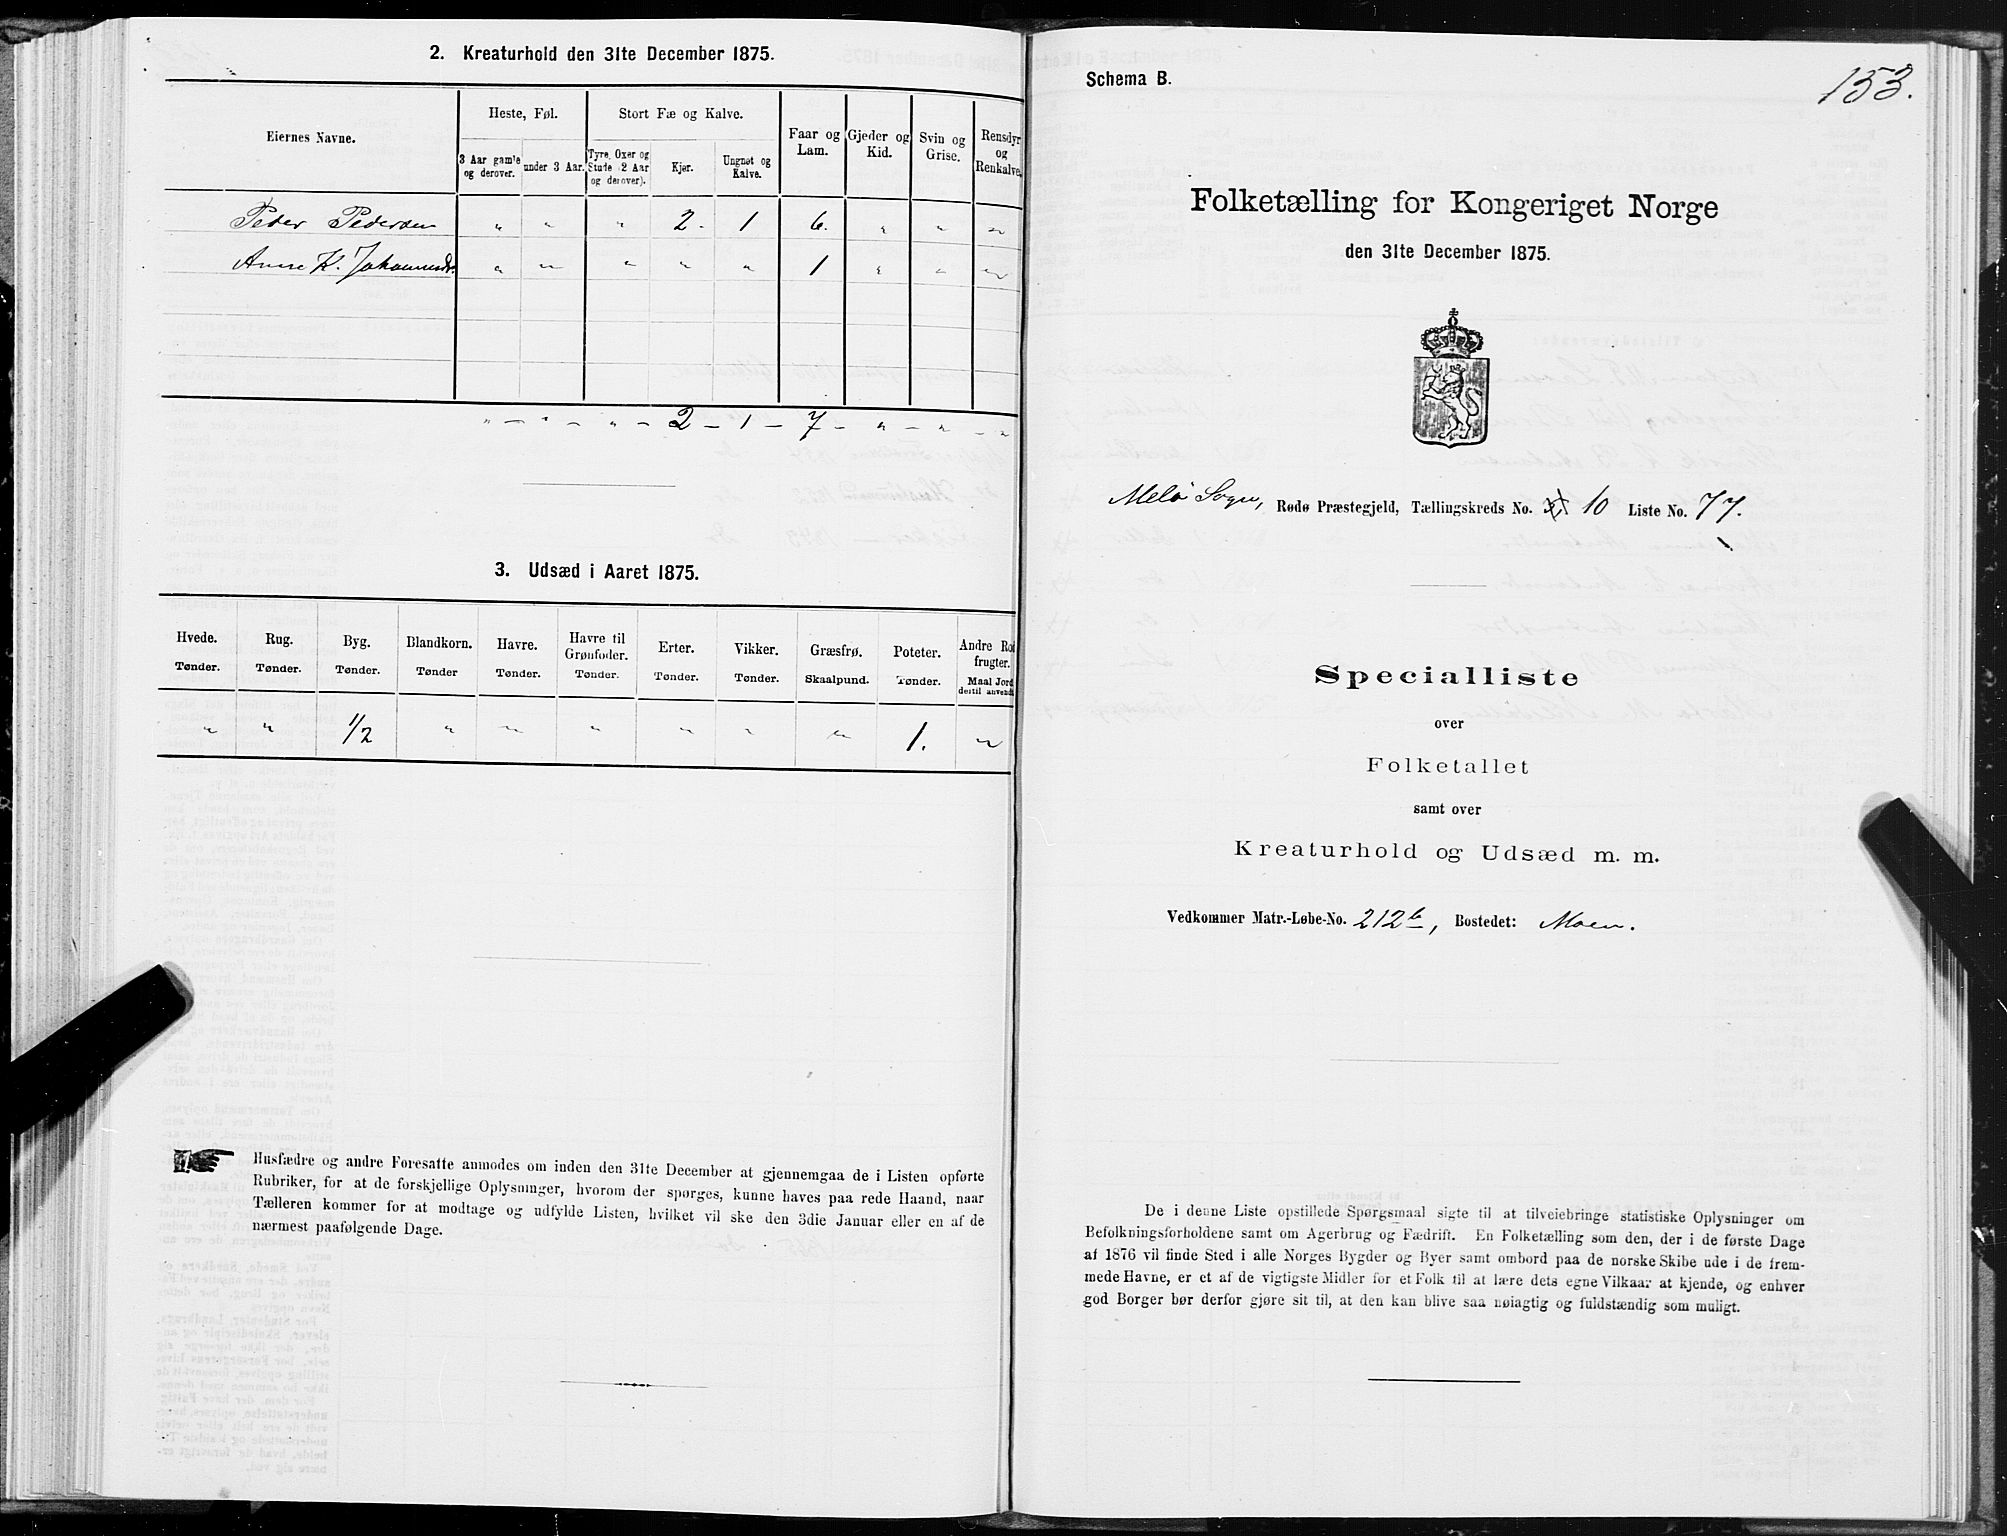 2. Kreaturhold den 31te December 1875.
Eiernes Navne.
Heste, Føl.
Stort Fæ og Kalve.
Faar og Lam.
Gjeder og Kid.
Svin og Grise.
Rensdyr og Renkalve.
3 Aar gamle og derover.
under 3 Aar.
Tyre, Oxer og Stude (2 Aar og derover).
Kjør.
Ungnøt og Kalve.
Peder Pedersen " " " 2. 1 6. " " "
Anne K. Johannesdr. " " " " " 1 " " "
" — " — " — 2 — 1 — 7 — " — " — "
3. Udsæd i Aaret 1875.
Hvede. Rug. Byg. Blandkorn. Havre. Havre til Grønfoder. Erter. Vikker. Græsfrø. Poteter. Andre Rodfrugter.
Tønder. Tønder. Tønder. Tønder Tønder. Tønder. Tønder. Tønder. Skaalpund. Tønder. Maal Jord dertil anvendt
" " 1/2 " " " " " " 1. "
Husfædre og andre Foresatte anmodes om inden den 31te December at gjennemgaa de i Listen opførte
Rubriker, for at de forskjellige Oplysninger, hvorom der spørges, kunne haves paa rede Haand, naar
Tælleren kommer for at modtage og udfylde Listen, hvilket vil ske den 3die Januar eller en af de
nærmest paafølgende Dage.
Schema B.
153.
Folketælling for Kongeriget Norge
den 31te December 1875.
Melø Sogn, Rødø Præstegjeld, Tællingskreds No. 10 Liste No. 77.
Specialliste
over
Folketallet
samt over
Kreaturhold og Udsæd m. m.
Vedkommer Matr.-Løbe-No. 212b, Bostedet: Moen.
De i denne Liste opstillede Spørgsmaal sigte til at tilveiebringe statistiske Oplysninger om
Befolkningsforholdene samt om Agerbrug og Fædrift. En Folketælling som den, der i de første Dage
af 1876 vil finde Sted i alle Norges Bygder og Byer samt ombord paa de norske Skibe ude i de frem-
mede Havne, er et af de vigtigste Midler for et Folk til at lære dets egne Vilkaar at kjende, og enhver
god Borger bør derfor gjøre sit til, at den kan blive saa nøiagtig og fuldstændig som muligt.